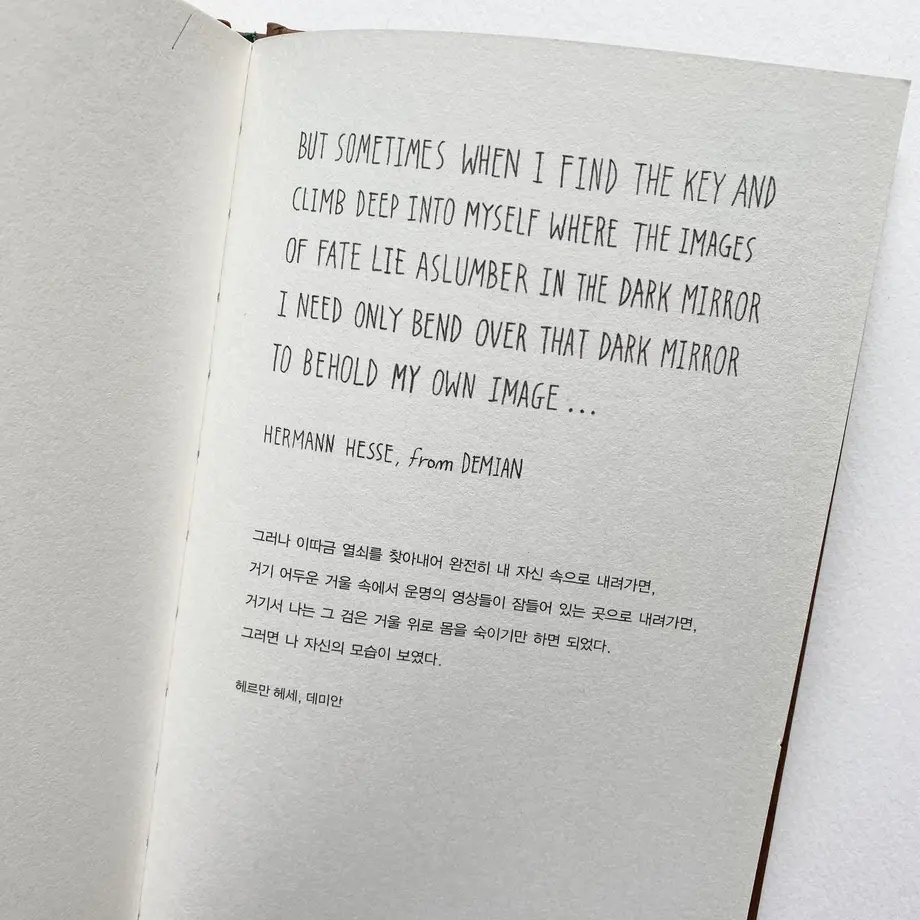 BUT SOMETIMES WHEN I FIND THE KEY AND
CLIMB DEEP INTO MYSELF WHERE THE IMAGES
OF FATE LIE ASLUMBER IN THE DARK MIRROR
I NEED ONLY BEND OVER THAT DARK MIRROR
TO BEHOLD MY OWN IMAGE...
HERMANN HESSE, from DEMIAN
그러나 이따금 열쇠를 찾아내어 완전히 내 자신 속으로 내려가면,
거기 어두운 거울 속에서 운명의 영상들이 잠들어 있는 곳으로 내려가면,
거기서 나는 그 검은 거울 위로 몸을 숙이기만 하면 되었다.
그러면 나 자신의 모습이 보였다.
헤르만 헤세, 데미안